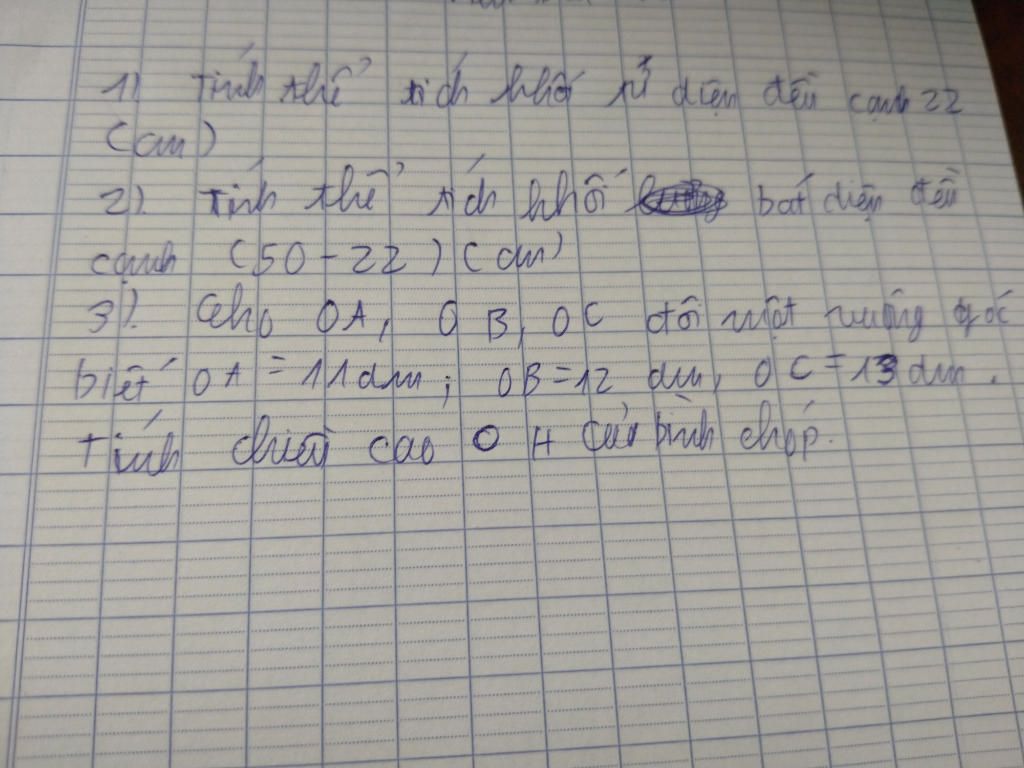 1) Tính thể tích khối tứ diện đều cạnh 22
(cm)
2). Tính thể tích khối bát diện đều
cạnh (50 - 22) (cm)
3). Cho OA, OB, OC đôi một vuông góc
biết OA = 11 dm; OB = 12 dm, OC = 13 dm.
Tính chiều cao OH của hình chóp.